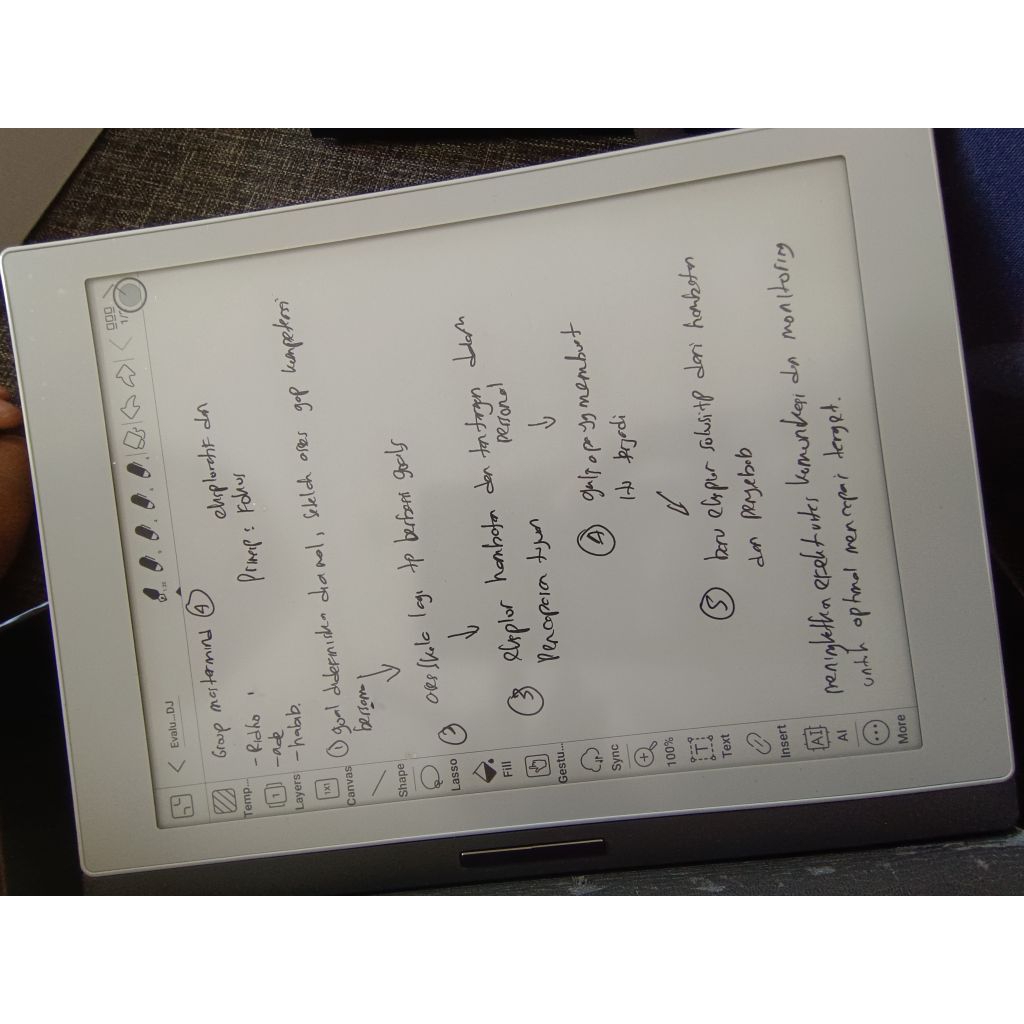 Evalu...DJ
1/
Group mastermind 4
- Ridho
- ade
- habib.
eksploratif dan
Prinsip : Fokus
1 goal didefinisikan diawal, setelah ases gap kompetensi
bersama
2 ases skala lagi tp berbasis goals
3 eksplor hambatan dan tantangan dalam
pencapaian tujuan personal
4 gali apa yg membuat
itu terjadi
5 baru eksplor solusi tp dari hambatan
dan penyebab
meningkatkan efektivitas komunikasi dan monitoring
untuk optimal mencapai target.
Temp...
Layers
Canvas
Shape
Lasso
Fill
Gestu...
Sync
100%
Text
Insert
AI
More